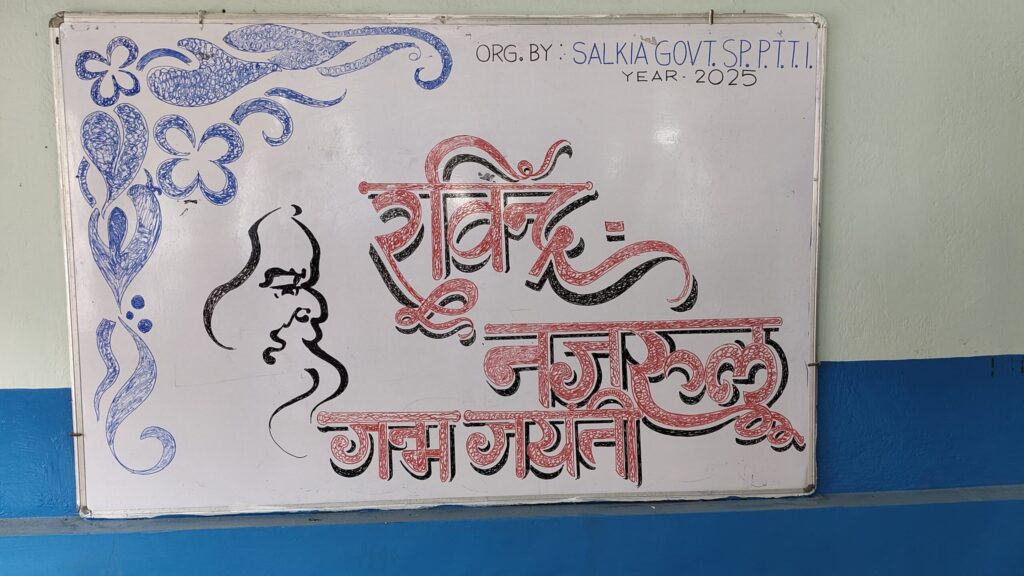 ORG. BY : SALKIA GOVT. SP. P.T.T.I.
YEAR - 2025
रविन्द्र -
नजरूल
जन्म जयंती